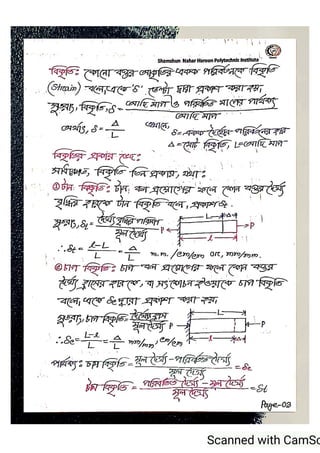 Shamshun Nahar Haroon Polytechnic Institute
বিকৃতিঃ কোনো বস্তুর আকৃতির একক পরিবর্তনকে বিকৃতি
(Strain) বলে, একে δ দ্বারা প্রকাশ করা হয়,
সুতরাং, বিকৃতি, δ = আদি মাপ ও পরিবর্তিত মাপের পার্থক্য
আদি মাপ
অর্থাৎ, δ = Δ/L এখানে, δ = একক দৈর্ঘ্যে পরিবর্তনের হার
Δ = মোট বিকৃতি, L = আদি মাপ
বিকৃতির প্রকারভেদঃ
বিকৃতি তিন প্রকার, যথাঃ
① টান বিকৃতিঃ টান বল প্রয়োগের ফলে কোন বস্তুর দৈর্ঘ্য
বৃদ্ধির হারকে টান বিকৃতি বলে,
সুতরাং, δt = দৈর্ঘ্য বৃদ্ধির পরিমাণ / মূল দৈর্ঘ্য
L Δ
P P
l
∴ δt = l-L / L = Δ / L m.m. /cm/cm or, mm/mm.
② চাপ বিকৃতিঃ চাপ বল প্রয়োগের ফলে কোন বস্তুর
দৈর্ঘ্য হ্রাসের হারকে, বা সংকোচন হওয়াকে চাপ বিকৃতি
বলে, একে δc দ্বারা প্রকাশ করা হয়,
সুতরাং, চাপ বিকৃতি = দৈর্ঘ্য হ্রাস / মূল দৈর্ঘ্য
L
P P
l Δ
∴ δc = L-l / L = Δ / L mm/mm, cm/cm
পার্থক্যঃ চাপ বিকৃতি = মূল দৈর্ঘ্য - পরিবর্তিত দৈর্ঘ্য / মূল দৈর্ঘ্য = δc
টান বিকৃতি = পরিবর্তিত দৈর্ঘ্য - মূল দৈর্ঘ্য / মূল দৈর্ঘ্য = δt
Page-03
Scanned with CamSc